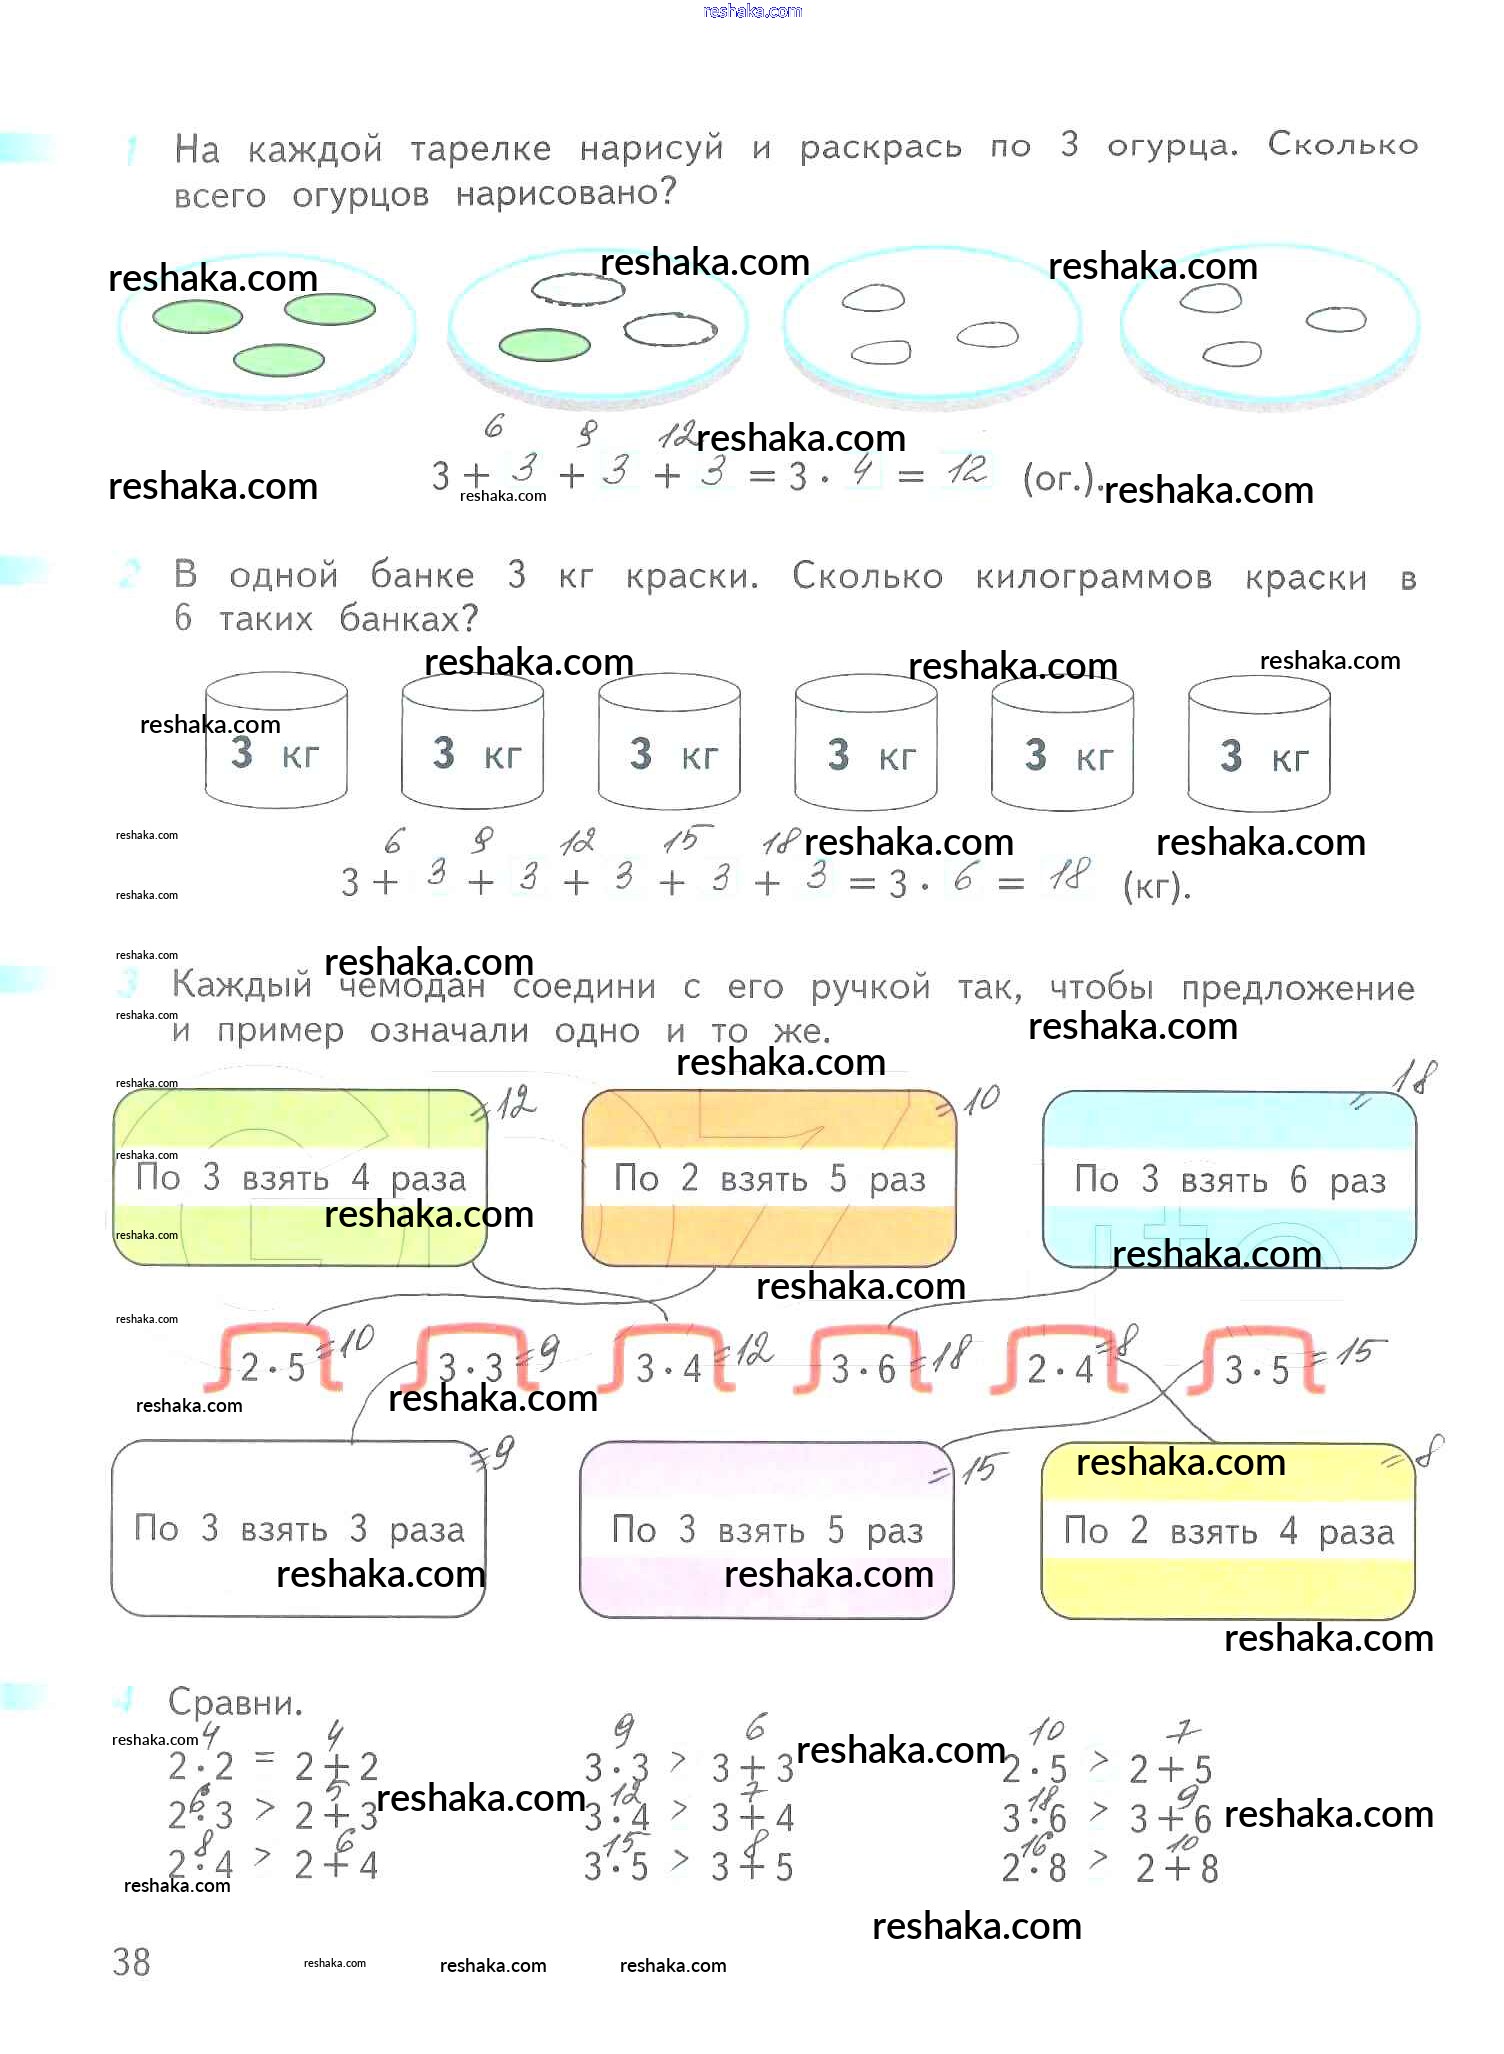 reshaka.com
1 На каждой тарелке нарисуй и раскрась по 3 огурца. Сколько
всего огурцов нарисовано?
reshaka.com reshaka.com reshaka.com
6 9 12 reshaka.com
3 + 3 + 3 + 3 = 3 · 4 = 12 (ог.).
reshaka.com reshaka.com reshaka.com
2 В одной банке 3 кг краски. Сколько килограммов краски в
6 таких банках?
reshaka.com reshaka.com reshaka.com
reshaka.com
3 кг 3 кг 3 кг 3 кг 3 кг 3 кг
reshaka.com 6 9 12 15 18 reshaka.com reshaka.com
3 + 3 + 3 + 3 + 3 + 3 = 3 · 6 = 18 (кг).
reshaka.com
reshaka.com reshaka.com
3 Каждый чемодан соедини с его ручкой так, чтобы предложение
reshaka.com reshaka.com
и пример означали одно и то же.
reshaka.com
reshaka.com =12 =10 =18
reshaka.com
По 3 взять 4 раза По 2 взять 5 раз По 3 взять 6 раз
reshaka.com
reshaka.com reshaka.com
reshaka.com
reshaka.com
2 · 5 =10 3 · 3 =9 3 · 4 =12 3 · 6 =18 2 · 4 =8 3 · 5 =15
reshaka.com reshaka.com
=9 =15 reshaka.com =8
По 3 взять 3 раза По 3 взять 5 раз По 2 взять 4 раза
reshaka.com reshaka.com
reshaka.com
4 Сравни.
reshaka.com 4 4 9 6 reshaka.com 10 7
2 · 2 = 2 + 2 3 · 3 > 3 + 3 2 · 5 > 2 + 5
6 5 reshaka.com 12 7 18 9 reshaka.com
2 · 3 > 2 + 3 3 · 4 > 3 + 4 3 · 6 > 3 + 6
8 6 15 8 16 10
2 · 4 > 2 + 4 3 · 5 > 3 + 5 2 · 8 > 2 + 8
reshaka.com
reshaka.com
38 reshaka.com reshaka.com reshaka.com